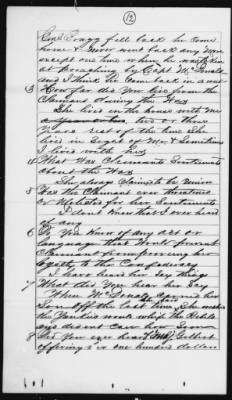 12
Genl Bragg fell back he come
home & never went back any more
except one time when he was taken
at preaching by Capt McDonald
and I think he come back in a week
3 How far did you live from the
Claimant during the War
She lived in the house with me
two or three
years rest of the time she
lived in sight of me & sometimes
I lived with her
4 What was Claimants Sentiments
about the War
She always claims to be Union
5 Was the Claimant ever threatened
or molested for her Sentiments
I dont know that I ever heard
of any
6 Do you know of any act or
language that would prevent
Claimant from proving her
loyalty to the
I have heard her say things
7 What did you hear her say
When McDonald carried her
Son off the last time She wished
the Yankies would whip the Rebels
and did not care how soon
8 Did you ever hear Gilbert
offering one hundred dollars